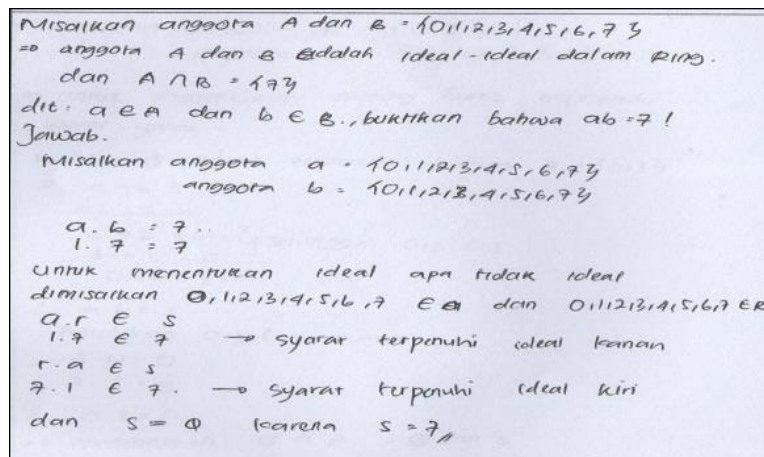 Misalkan anggota A dan B = {0,1,2,3,4,5,6,7}
=> anggota A dan B adalah ideal-ideal dalam Ring.
dan A ∩ B = {7}
dit: a ∈ A dan b ∈ B., buktikan bahwa ab = 7!
Jawab.
Misalkan anggota a = {0,1,2,3,4,5,6,7}
anggota b = {0,1,2,3,4,5,6,7}
a . b = 7..
1. 7 = 7
untuk menentukan ideal apa tidak ideal
dimisalkan 0,1,2,3,4,5,6,7 ∈ a dan 0,1,2,3,4,5,6,7 ∈ R
a.r ∈ s
1.7 ∈ 7 → syarat terpenuhi ideal kanan
r.a ∈ s
7.1 ∈ 7. → syarat terpenuhi ideal kiri
dan s = Φ karena s = 7,,